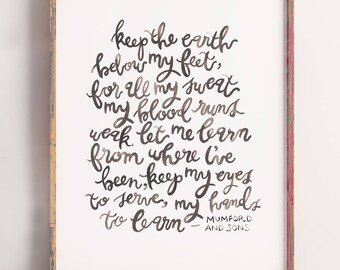 keep the earth
below my feet,
for all my sweat
my blood runs
weak. let me learn
from where i've
been, keep my eyes
to serve, my hands
to learn — MUMFORD
AND SONS